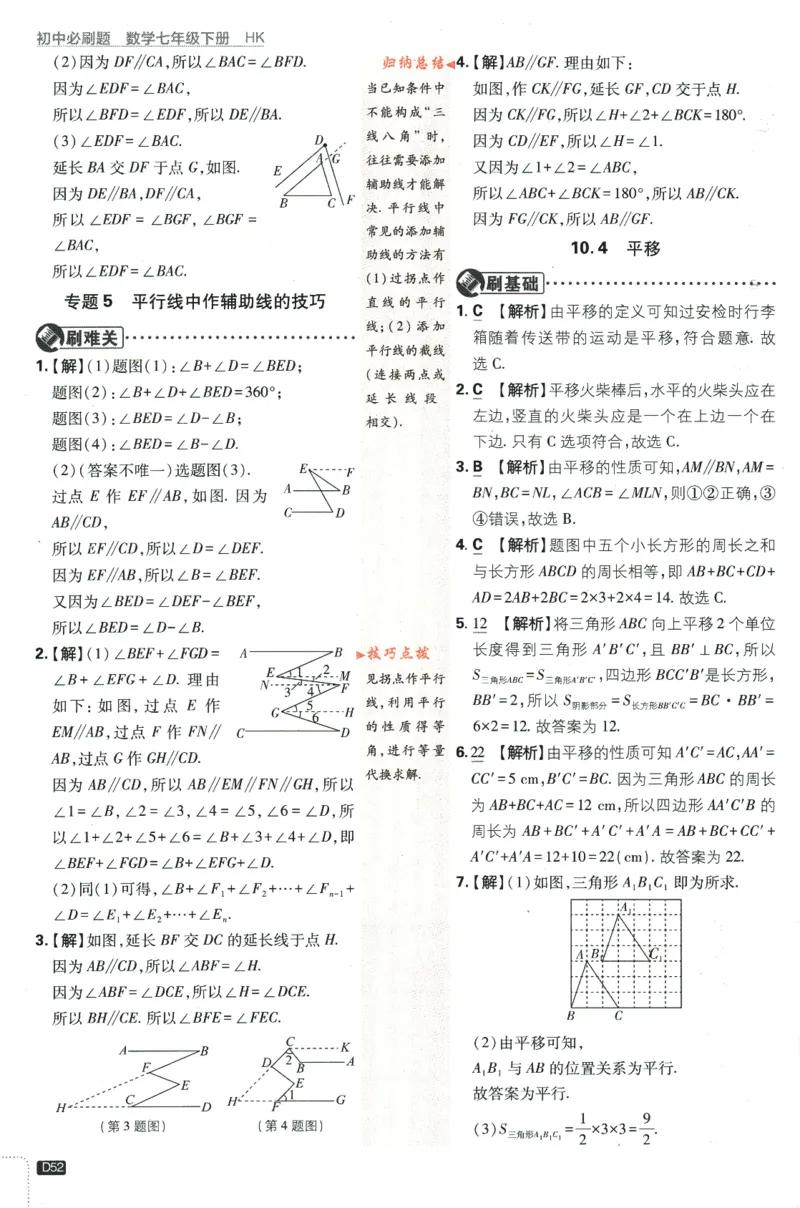 初中必刷题 数学七年级下册 HK
(2)因为 DF∥CA,所以∠BAC=∠BFD.
因为∠EDF=∠BAC,
所以∠BFD=∠EDF,所以 DE∥BA.
(3)∠EDF=∠BAC.
延长 BA 交 DF 于点 G,如图.
因为 DE∥BA,DF∥CA,
所以 ∠EDF = ∠BGF, ∠BGF =
∠BAC,
所以∠EDF=∠BAC.
D
A G
E
B C F
专题 5 平行线中作辅助线的技巧
刷难关
1.【解】(1)题图(1):∠B+∠D=∠BED;
题图(2):∠B+∠D+∠BED=360°;
题图(3):∠BED=∠D-∠B;
题图(4):∠BED=∠B-∠D.
(2)(答案不唯一)选题图(3).
过点 E 作 EF∥AB,如图. 因为
AB∥CD,
所以 EF∥CD,所以∠D=∠DEF.
因为 EF∥AB,所以∠B=∠BEF.
又因为∠BED=∠DEF-∠BEF,
所以∠BED=∠D-∠B.
E F
A B
C D
2.【解】(1)∠BEF+∠FGD=
∠B+∠EFG+∠D. 理由
如下: 如图, 过点 E 作
EM∥AB,过点 F 作 FN∥
AB,过点 G 作 GH∥CD.
因为 AB∥CD,所以 AB∥EM∥FN∥GH,所以
∠1=∠B,∠2=∠3,∠4=∠5,∠6=∠D,所
以∠1+∠2+∠5+∠6=∠B+∠3+∠4+∠D,即
∠BEF+∠FGD=∠B+∠EFG+∠D.
(2)同(1)可得,∠B+∠F₁+∠F₂+…+∠Fₙ₋₁+
∠D=∠E₁+∠E₂+…+∠Eₙ.
A B
E 1 2 M
N 3 4 F
G 5 H
6
C D
3.【解】如图,延长 BF 交 DC 的延长线于点 H.
因为 AB∥CD,所以∠ABF=∠H.
因为∠ABF=∠DCE,所以∠H=∠DCE.
所以 BH∥CE. 所以∠BFE=∠FEC.
A B
F
E
H C D
(第 3 题图)
C K
D 2 B A
E
H 1 G
F
(第 4 题图)
D52
归纳总结
当已知条件中
不能构成“三
线八角”时,
往往需要添加
辅助线才能解
决. 平行线中
常见的添加辅
助线的方法有
(1)过拐点作
直线的平行
线;(2)添加
平行线的截线
(连接两点或
延长线段
相交).
技巧点拨
见拐点作平行
线,利用平行
的性质得等
角,进行等量
代换求解.
4.【解】AB∥GF. 理由如下:
如图,作 CK∥FG,延长 GF,CD 交于点 H.
因为 CK∥FG,所以∠H+∠2+∠BCK=180°.
因为 CD∥EF,所以∠H=∠1.
又因为∠1+∠2=∠ABC,
所以∠ABC+∠BCK=180°,所以 AB∥CK.
因为 FG∥CK,所以 AB∥GF.
10.4 平移
刷基础
1. C 【解析】由平移的定义可知过安检时行李
箱随着传送带的运动是平移,符合题意. 故
选 C.
2. C 【解析】平移火柴棒后,水平的火柴头应在
左边,竖直的火柴头应是一个在上边一个在
下边. 只有 C 选项符合,故选 C.
3. B 【解析】由平移的性质可知,AM∥BN,AM=
BN,BC=NL,∠ACB=∠MLN,则①②正确,③
④错误,故选 B.
4. C 【解析】题图中五个小长方形的周长之和
与长方形 ABCD 的周长相等,即 AB+BC+CD+
AD=2AB+2BC=2×3+2×4=14. 故选 C.
5. 12 【解析】将三角形 ABC 向上平移 2 个单位
长度得到三角形 A′B′C′,且 BB′⊥BC,所以
S三角形ABC=S三角形A′B′C′,四边形 BCC′B′是长方形,
BB′=2,所以 S阴影部分=S长方形BB′C′C=BC·BB′=
6×2=12. 故答案为 12.
6. 22 【解析】由平移的性质可知 A′C′=AC,AA′=
CC′=5 cm,B′C′=BC. 因为三角形 ABC 的周长
为 AB+BC+AC=12 cm,所以四边形 AA′C′B 的
周长为 AB+BC′+A′C′+A′A=AB+BC+CC′+
A′C′+A′A=12+10=22(cm). 故答案为 22.
7.【解】(1)如图,三角形 A₁B₁C₁ 即为所求.
A₁
A B₁ C₁
B C
(2)由平移可知,
A₁B₁ 与 AB 的位置关系为平行.
故答案为平行.
(3)S三角形A₁B₁C₁=1/2×3×3=9/2.